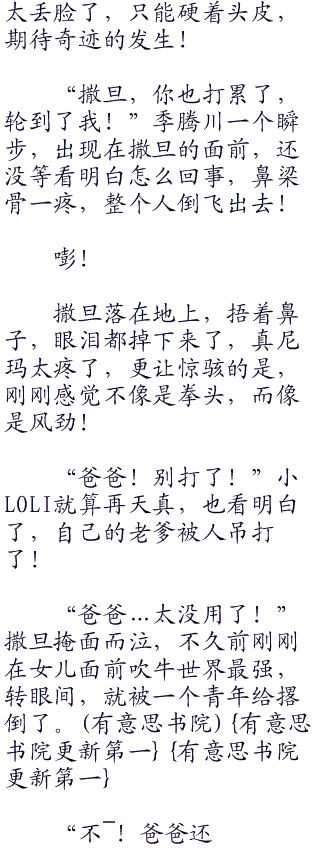 太丢脸了，只能硬着头皮，
期待奇迹的发生！
“撒旦，你也打累了，
轮到了我！”季腾川一个瞬
步，出现在撒旦的面前，还
没等看明白怎么回事，鼻梁
骨一疼，整个人倒飞出去！
嘭！
撒旦落在地上，捂着鼻
子，眼泪都掉下来了，真尼
玛太疼了，更让惊骇的是，
刚刚感觉不像是拳头，而像
是风劲！
“爸爸！别打了！”小
LOLI就算再天真，也看明白
了，自己的老爹被人吊打
了！
“爸爸…太没用了！”
撒旦掩面而泣，不久前刚刚
在女儿面前吹牛世界最强，
转眼间，就被一个青年给撂
倒了。(有意思书院) {有意思
书院更新第一} {有意思书院
更新第一}
“不¯！爸爸还